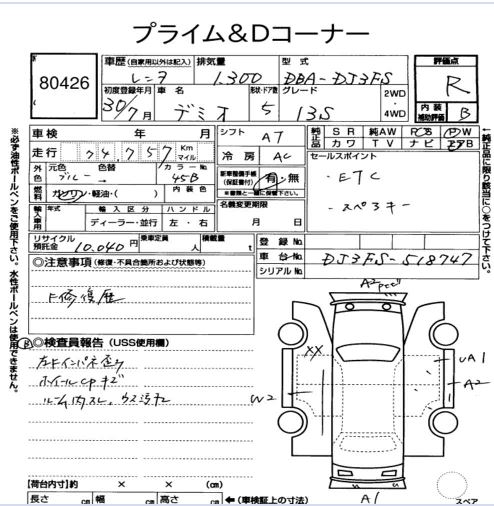 プライム＆Dコーナー
80426
車歴 (自家用以外は記入) レンタ
排気量 1.300
型式 DBA-DJ3FS
評価点 R
初度登録年月 30年7月
車名 デミオ
形状・ドア数 5
グレード 13S
2WD
4WD
内装補助評価 B
車検 年 月
シフト AT
純正品 SR 純AW PS PW
カワ TV ナビ エアB
走行 74,757 Km マイル
冷房 AC
セールスポイント
・ETC
・スペアキー
外色 元色 ブルー 色替 カラーNo. 45B
新車整備手帳 (保証書付) 有・無
※書類と一緒に保管下さい。
燃料 ガソリン・軽油・( ) 内装色
輸入車用 年式 輸入区分 ハンドル
ディーラー・並行 左・右
名義変更期限 月 日
リサイクル預託金 10,040円
乗車定員 人
積載量 t
登録No.
車台No. DJ3FS-518747
シリアルNo.
◎注意事項 (修復・不具合箇所および状態等)
F修復歴
B ◎検査員報告 (USS使用欄)
左Fインパネ歪ミ
ホイールcpキズ
ルーム内スレ、ウス汚れ
XX
W2
UA1
A2
A1
スペア
【荷台内寸】約 × × (cm)
長さ cm 幅 cm 高さ cm ←(車検証上の寸法)
※必ず油性ボールペンをご使用下さい。水性ボールペンは使用できません。
←純正品に限り該当に○をつけて下さい。